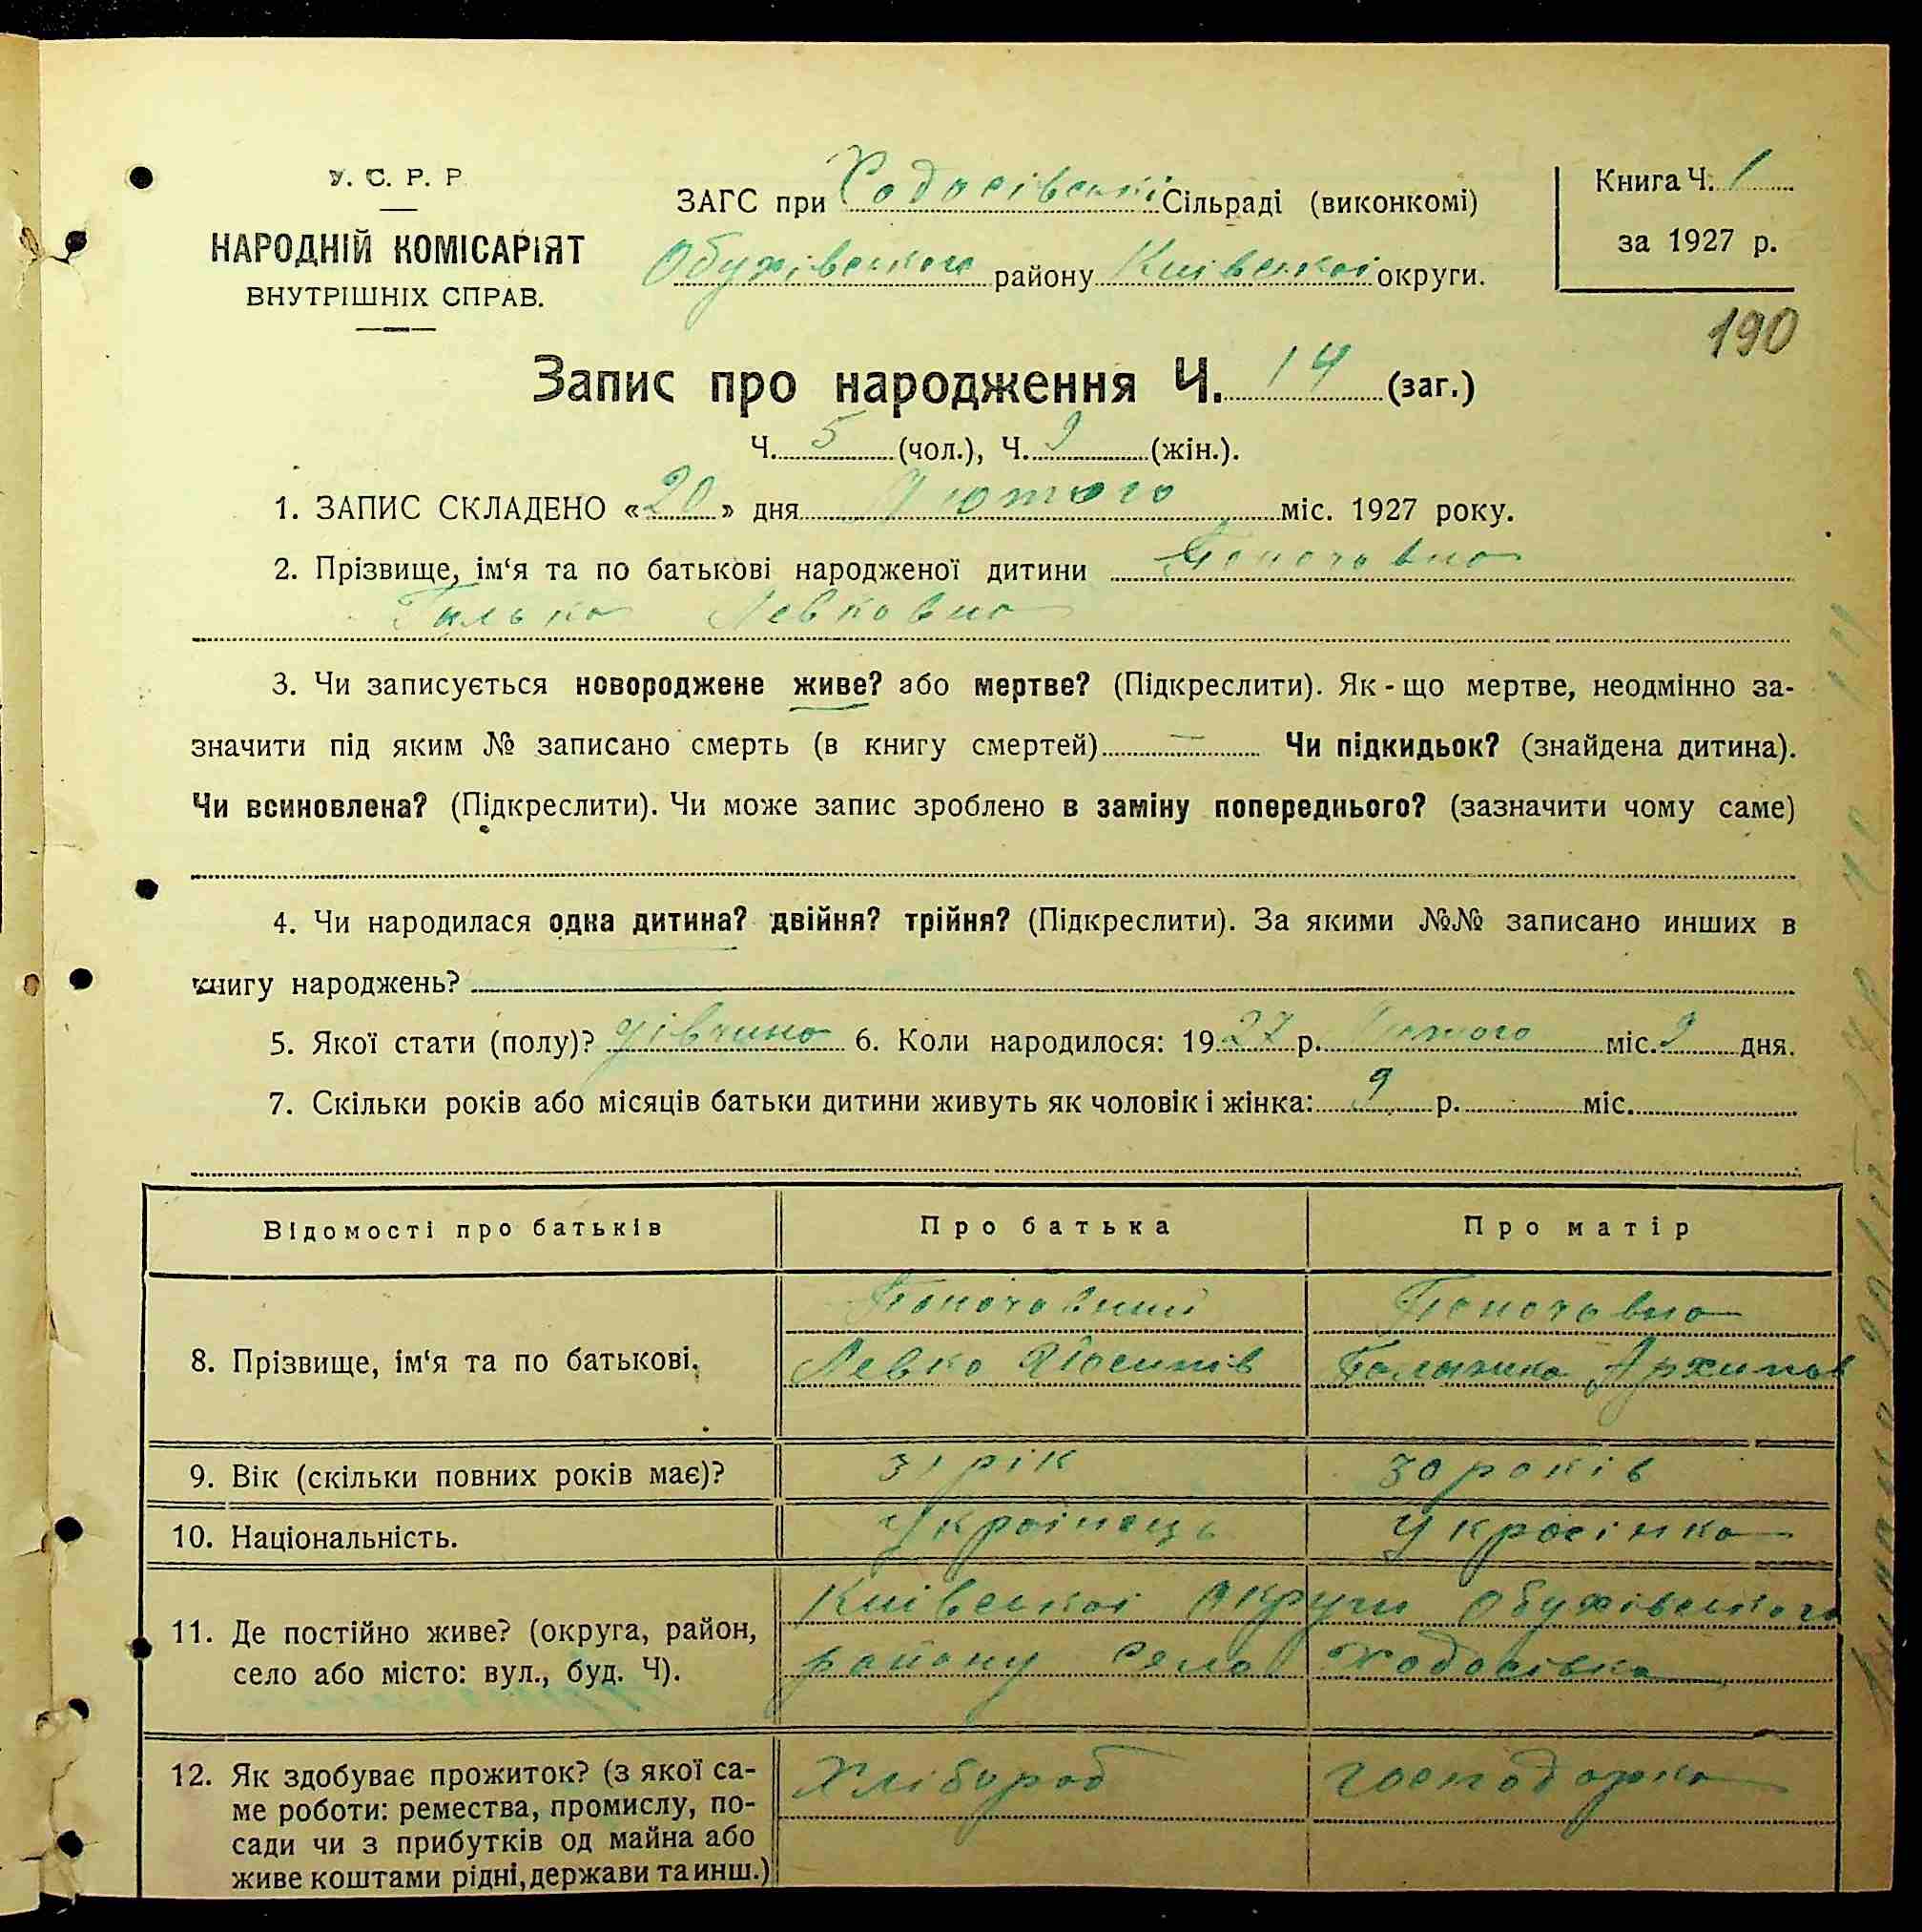 У. С. Р. Р
НАРОДНІЙ КОМІСАРІЯТ
ВНУТРІШНІХ СПРАВ.
ЗАГС при Ходосівські Сільраді (виконкомі)
Обухівського району Київської округи.
Книга Ч. 1
за 1927 р.
190
Запис про народження Ч. 14 (заг.)
Ч. 5 (чол.), Ч. 9 (жін.).
1. ЗАПИС СКЛАДЕНО «20» дня Лютого міс. 1927 року.
2. Прізвище, ім‘я та по батькові народженої дитини
Галька Левковна
3. Чи записується новороджене живе? або мертве? (Підкреслити). Як-що мертве, неодмінно за-
значити під яким № записано смерть (в книгу смертей) — Чи підкидьок? (знайдена дитина).
Чи всиновлена? (Підкреслити). Чи може запис зроблено в заміну попереднього? (зазначити чому саме)
4. Чи народилася одна дитина? двійня? трійня? (Підкреслити). За якими №№ записано инших в
книгу народжень?
5. Якої стати (полу)? дівчина 6. Коли народилося: 1927 р. Лютого міс. 9 дня.
7. Скільки років або місяців батьки дитини живуть як чоловік і жінка: 9 р. міс.
Відомості про батьків Про батька Про матір
8. Прізвище, ім‘я та по батькові.
Левко Йосипів Архипов
9. Вік (скільки повних років має)? 31 рік 30 років
10. Національність. Українець Українка
11. Де постійно живе? (округа, район,
село або місто: вул., буд. Ч).
Київської округи Обухівського
району село Ходосівка
12. Як здобуває прожиток? (з якої са-
ме роботи: ремества, промислу, по-
сади чи з прибутків од майна або
живе коштами рідні, держави та инш.)
Хлібороб господарка